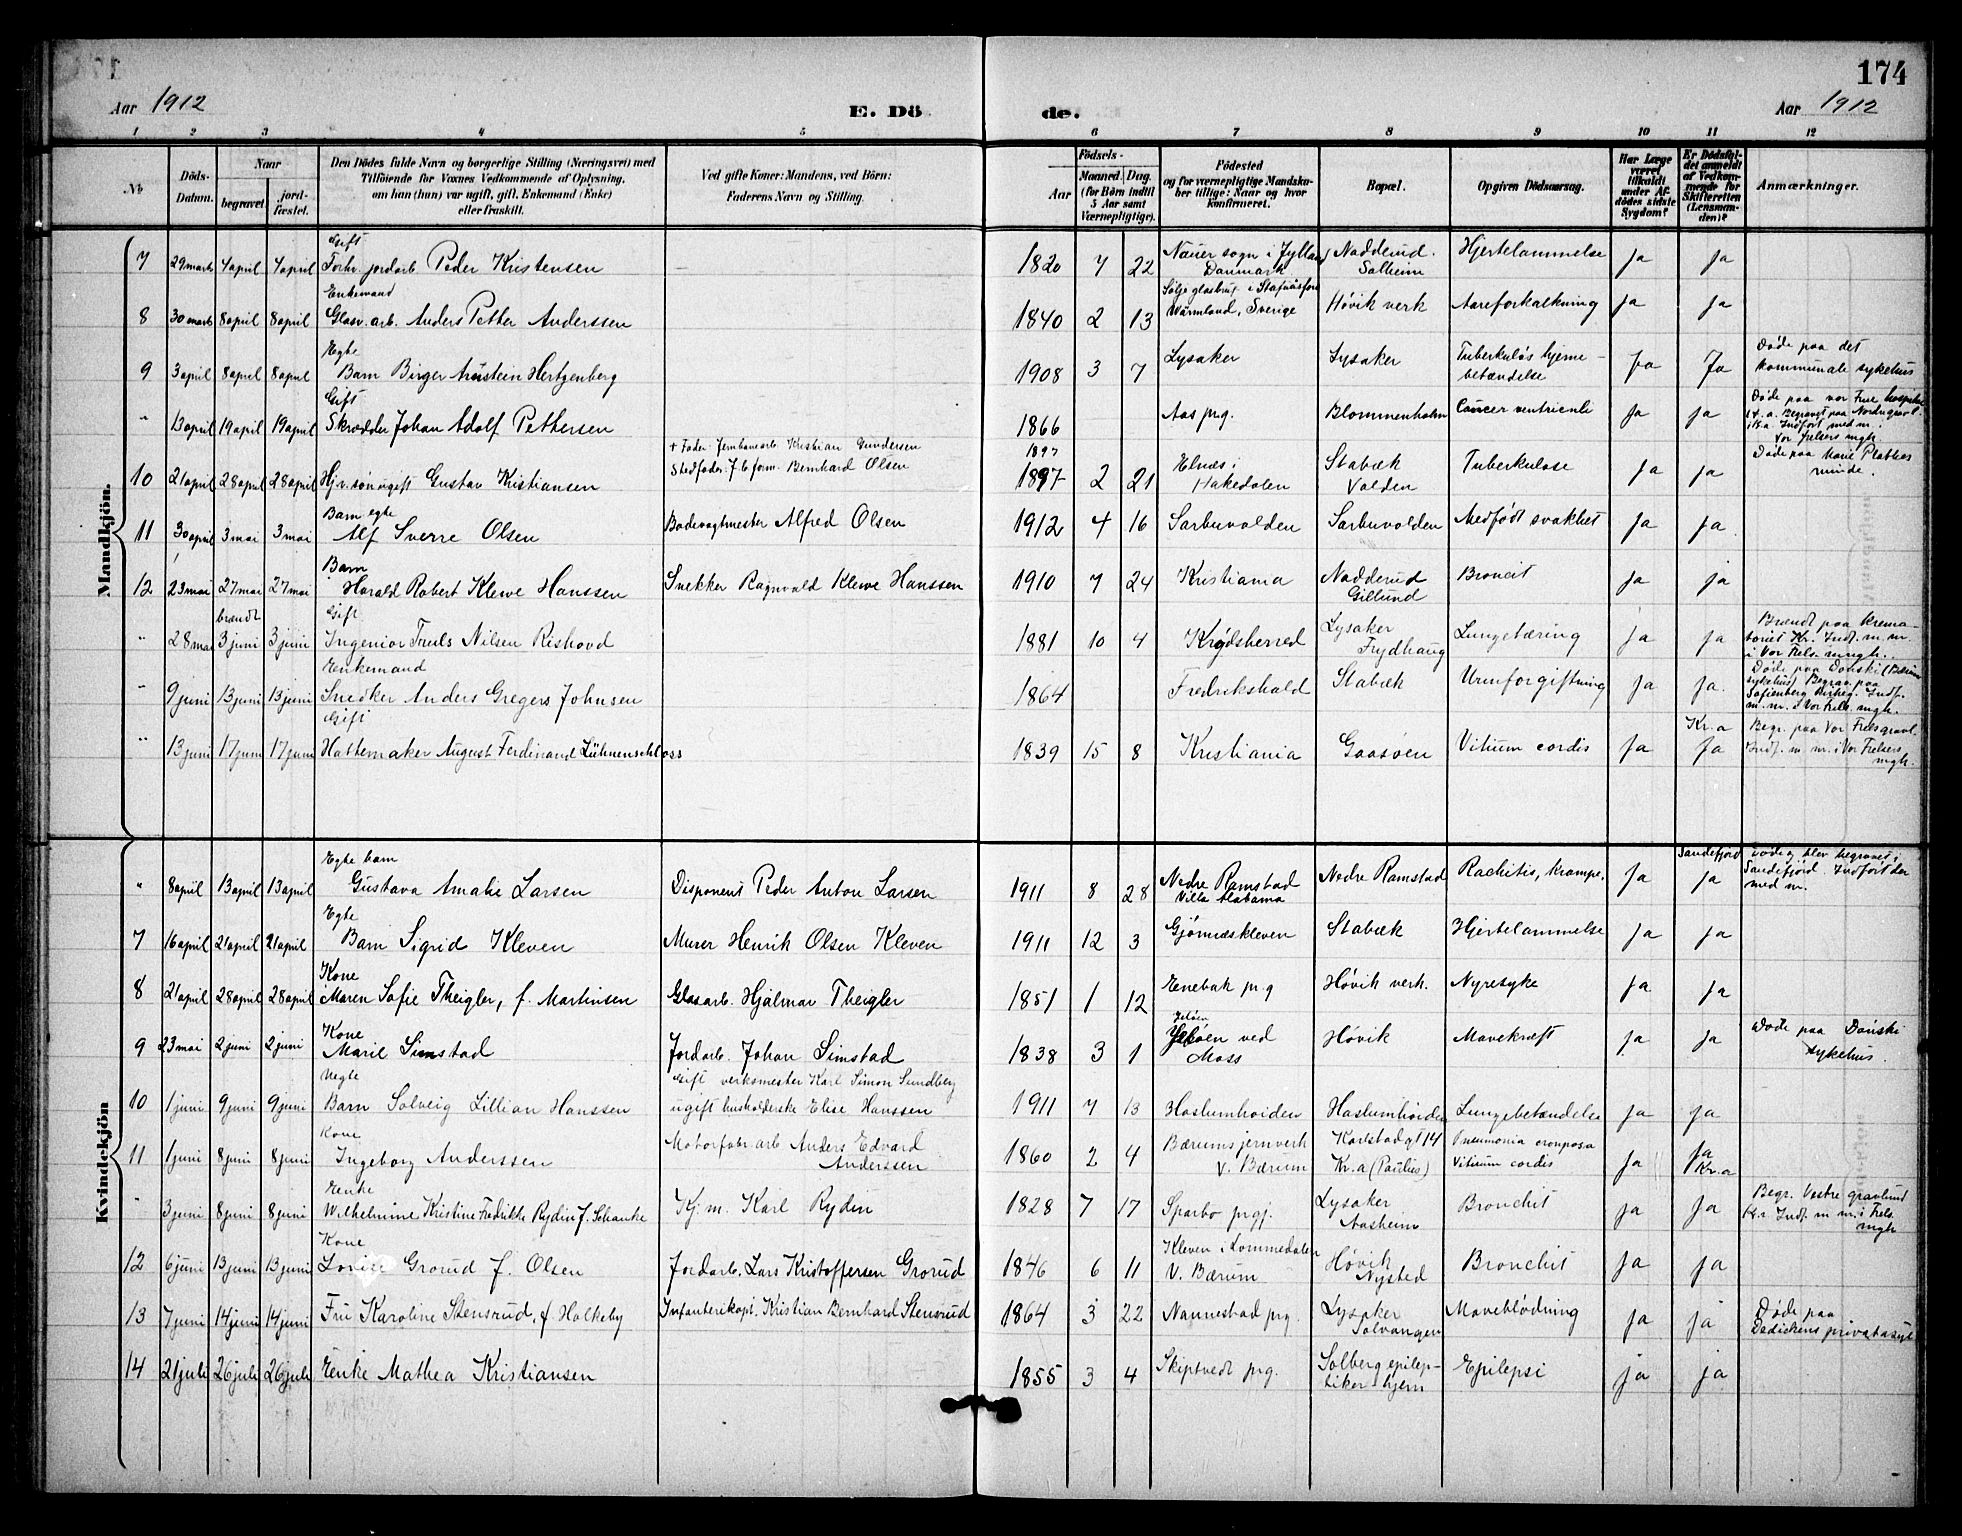 174
Aar 1912
E. Dö
de.
Aar 1912
1 2 3 4 5 6 7 8 9 10 11 12
No
Döds-
Datum.
Naar
begravet
jord-
fæstet.
Den Dödes fulde Navn og borgerlige Stilling (Næringsvei) med
Tilföiende for Voxnes Vedkommende af Oplysning,
om han (hun) var ugift, gift, Enkemand (Enke)
eller fraskilt.
Ved gifte Koner: Mandens, ved Börn:
Faderens Navn og Stilling.
Födsels-
Aar
Maaned. Dag.
(for Börn indtil
5 Aar samt
Værnepligtige).
Födested
og for værnepligtige Mandska-
ber tillige: Naar og hvor
konfirmeret.
Bopæl.
Opgiven Dödsaarsag.
Har Læge
været
tilkaldt
under Af-
dödes sidste
Sygdom?
Er Dödsfal-
det anmeldt
af Vedkom-
mende for
Skifteretten
(Lensman-
den)?
Anmærkninger.
Mandkjön.
Gift
7 29 marts 4 april 4 april Forhv. jordarb. Peder Kristensen 1820 7 22 Nauer sogn i Jylland Danmark Nadderud. Solheim Hjertelammelse ja ja
Enkemand
8 30 marts 8 april 8 april Glasv. arb. Anders Petter Anderssen 1840 2 13 Wärmland, Sverige Høvik verk Aareforkalkning ja ja
Egte
9 3 april 8 april 8 april Barn Birger Arnstein Hertzenberg 1908 3 7 Lysaker Lysaker Tuberkuløs hjerne-betændelse ja ja Døde paa det kommunale sykehus
Gift
" 13 april 19 april 19 april Skrædder Johan Adolf Pettersen 1866 Aas prg. Blommenholm Cancer ventriculi ja ja Døde paa vor Frue hospital Kr.a. Begravet paa Nordre gravl. i Kr.a Indført med nr. i Vor Frelsers mgh.
+ Fader: Jernbanearb. Kristian Gundersen
1897
10 21 april 28 april 28 april Hj.v. søn ugift Gustav Kristiansen Stedfader: J.b.form. Bernhard Olsen 1897 2 21 Elnæs i Hakedalen Stabæk Volden Tuberkulose ja ja Døde paa Marie Plathes minde.
Barn egte
11 30 april 3 mai 3 mai Alf Sverre Olsen Badevagtmester Alfred Olsen 1912 4 16 Sarbuvolden Sarbuvolden Medfødt svakhet ja ja
Barn
12 23 mai 27 mai 27 mai Harald Robert Klewe Hanssen Snekker Ragnvald Klewe Hanssen 1910 7 24 Kristiania Nadderud Gillund Broncit ja ja
brændt Gift
" 28 mai 3 juni 3 juni Ingeniør Truls Nilsen Rishovd 1881 10 4 Krødsherred Lysaker Frydhaug Lungetæring ja ja Brændt paa krema-toriet Kr. Indf. m. nr. i Vor Frels. mngh.
Enkemand
" 9 juni 13 juni 13 juni Snedker Anders Gregers Johnsen 1864 Fredrikshald Stabæk Urinforgiftning ja ja. Døde paa Dønski (Bærum sykehus) Begrav. paa Sofienberg kirkeg. Indf. m. nr. i Vor Frels. mgh.
Gift
" 13 juni 17 juni 17 juni Hattemaker August Ferdinand Lühnenschloss 1839 15 8 Kristiania Gaasøen Vitium cordis ja Kr.a ja Begr. paa Vor Frels gravl. Indf. m. nr. i Vor Frelsers mgh.
Kvindekjön
Egte barn
" 8 april 13 april 13 april Gustava Amalie Larsen Disponent Peder Anton Larsen 1911 8 28 Nedre Ramstad Villa Alabama Nedre Ramstad Rachitis, krampe. ja Sandefjord ja Døde og blev begravet i Sandefjord. Indført der med nr.
Egte
7 16 april 21 april 21 april Barn Sigrid Kleven Murer Henrik Olsen Kleven 1911 12 3 Gjønnæskleven Stabæk Hjertelammelse ja ja
Kone
8 21 april 28 april 28 april Maren Sofie Theigler, f. Martinsen Glasarb. Hjalmar Theigler 1851 1 12 Enebak prg Høvik verk. Nyresyke ja ja
Kone
9 23 mai 2 juni 2 juni Marie Simstad Jordarb. Johan Simstad 1838 3 1 Jeløen Jeløen ved Moss Høvik Mavekræft ja ja Døde paa Dønski sykehus.
Uegte
10 1 juni 9 juni 9 juni Barn Solveig Lillian Hanssen Gift verksmester Karl Simon Sundberg ugift husholderske Elise Hanssen 1911 7 13 Haslumhøiden Haslumhøiden Lungebetændelse ja ja
Kone
11 1 juni 8 juni 8 juni Ingeborg Anderssen Motorfabr. arb Anders Edvard Anderssen 1860 2 4 Bærums jernverk V. Bærum Karlstadgt 14 Kr.a (Paulus) Pneumonia crouposa Vitium cordis ja ja Kr.a
Enke
" 3 juni 8 juni 8 juni Wilhelmine Kristine Fredrikke Rydin f. Schanke Kj.m. Karl Rydin 1828 7 17 Sparbo prgj. Lysaker Aasheim Bronchit ja ja Begr. Vestre gravlund Kr. Indf. m nr. i Frels. mgh
Kone
12 6 juni 13 juni 13 juni Lovise Grorud f. Olsen Jordarb. Lars Kristoffersen Grorud 1846 6 11 Kleven i Lommedalen V. Bærum Høvik Nysted Bronchit ja ja
13 7 juni 14 juni 14 juni Fru Karoline Stensrud, f. Holkeby Infanterikapt. Kristian Bernhard Stensrud 1864 3 22 Nannestad prg. Lysaker Solvangen Maveblødning ja ja Døde paa Dedichens privatasyl
14 21 juli 26 juli 26 juli Enke Mathea Kristiansen 1855 3 4 Skiptvedt prg. Solberg epilep-tiker hjem Epilepsi ja ja